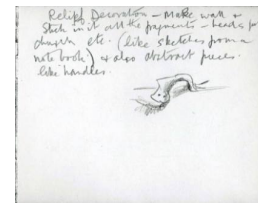 Relief Decoration - Make wall &
stick in it all the fragments - heads for
church etc. (like sketches from a
note book) & also abstract pieces.
like handles.